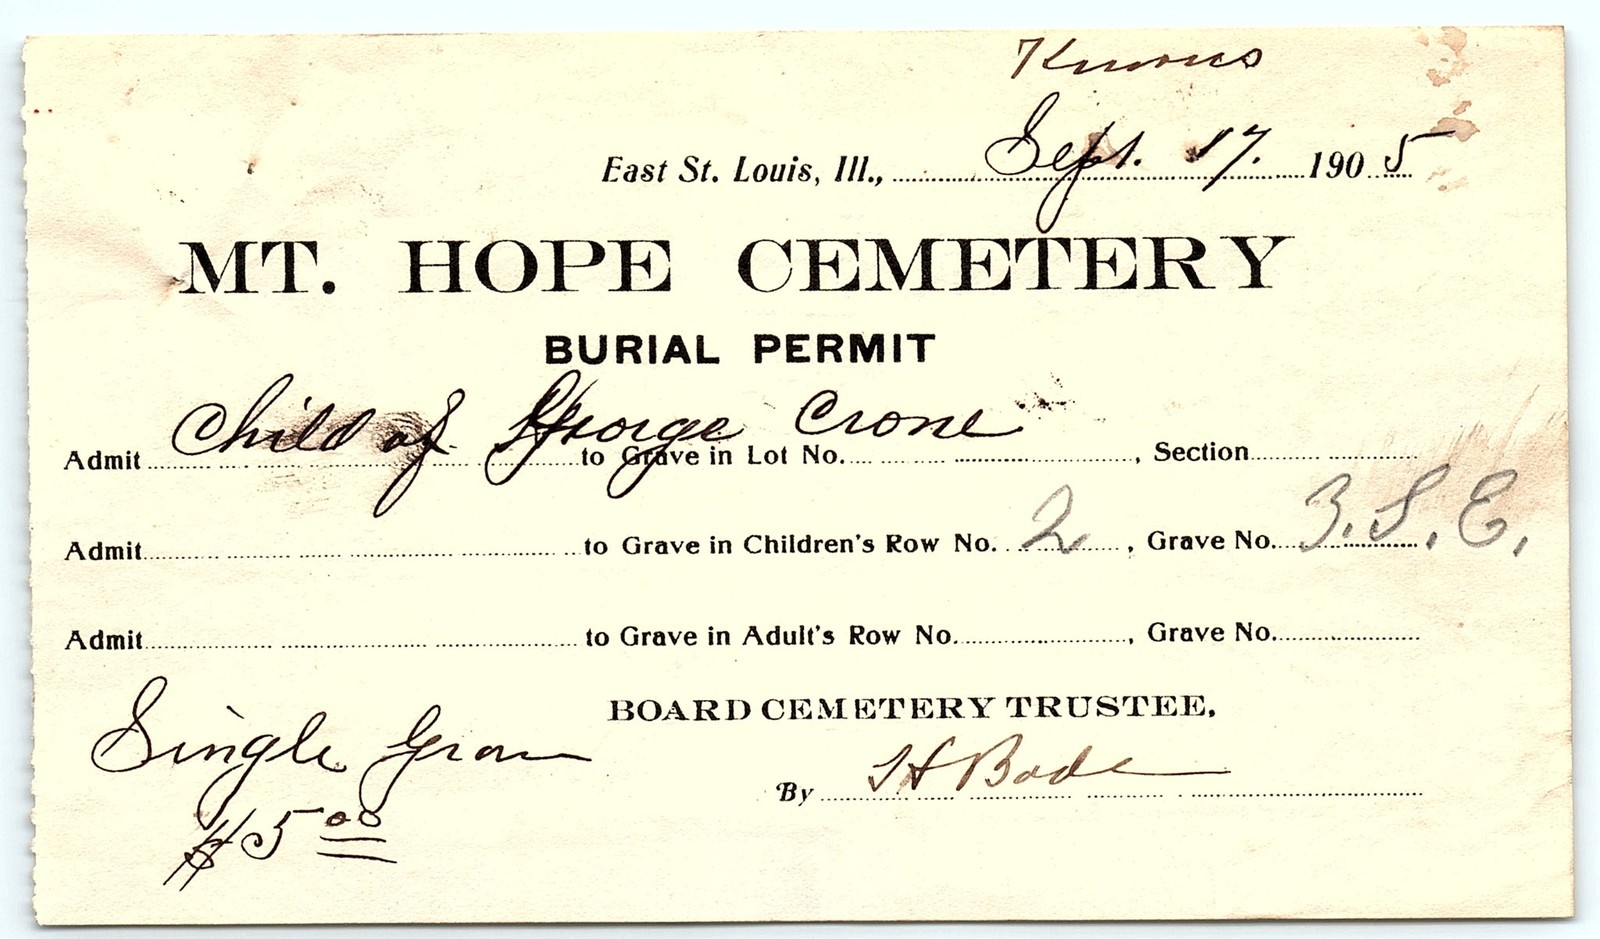 East St. Louis, Ill., Sept. 17. 1905
MT. HOPE CEMETERY
BURIAL PERMIT
Admit Child of George Crone to Grave in Lot No. , Section
Admit to Grave in Children's Row No. 2 , Grave No. 3. S. E.
Admit to Grave in Adult's Row No. , Grave No.
BOARD CEMETERY TRUSTEE.
Single Grave
By H Bode
$5 00